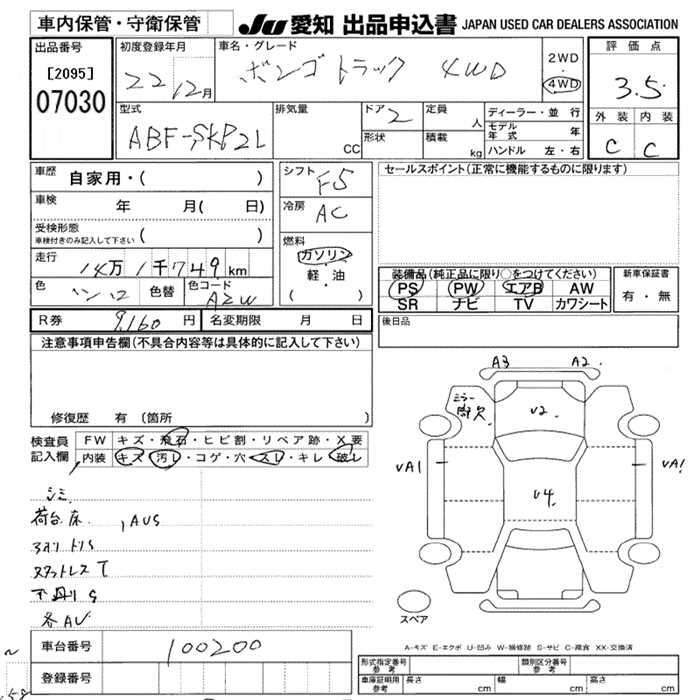 車内保管・守衛保管
JU 愛知 出品申込書 JAPAN USED CAR DEALERS ASSOCIATION
出品番号
[2095]
07030
初度登録年月
22 12月
車名・グレード
ボンゴ トラック 4WD
2WD
4WD
評価点
3.5
外装 内装
C C
型式
ABF-SKP2L
排気量
CC
ドア 2
形状
定員
人
積載
kg
ディーラー・並行
モデル年式 年
ハンドル 左・右
車歴
自家用・( )
車検
年 月( 日)
受検形態
車検付きのみ記入して下さい ( )
走行
14万 1千749km
色 色替 色コード
A2W
シフト
F5
冷房
AC
燃料
ガソリン
軽・油
( )
セールスポイント(正常に機能するものに限ります)
装備品(純正品に限り○をつけてください)
PS PW エアB AW
SR ナビ TV カワシート
新車保証書
有・無
R券 9,160 円 名変期限 月 日
後日品
注意事項申告欄(不具合内容等は具体的に記入して下さい)
修復歴 有 (箇所 )
検査員記入欄
FW キズ・飛石・ヒビ割・リペア跡・X要
内装 キズ・汚レ・コゲ・穴・スレ・キレ・破レ
シミ
荷台床 AUS
アオリトリS
スタッドレスT
下廻りS
各AU
A3 A2
ミラー
U2
VA1
VA1
V4
スペア
A-キズ E-エクボ U-凹み W-補修跡 S-サビ C-腐食 XX-交換済
車台番号 100200
登録番号
形式指定番号 参考
類別区分番号 参考
車庫証明用 参考 長さ cm 幅 cm 高さ cm